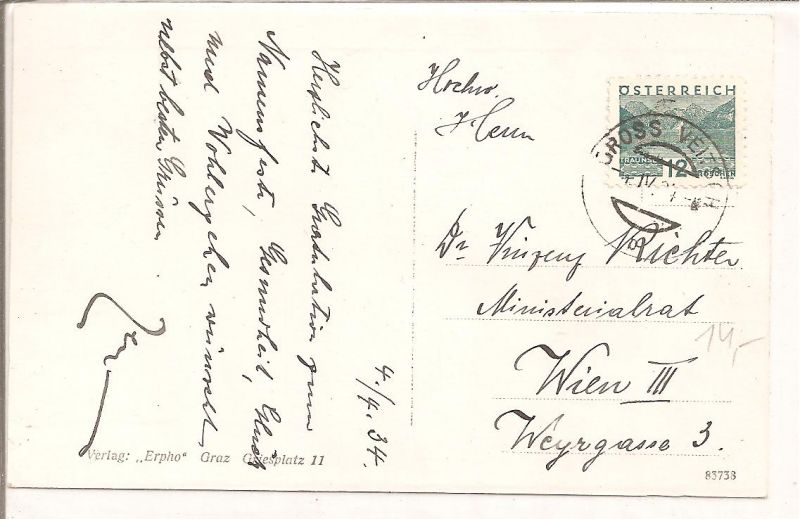 Herzlichste Gratulation zum
Namensfeste, Gesundheit, Glück
und Wohlergehen wünscht,
nebst besten Grüssen.
4./4. 34.
Verlag: „Erpho“ Graz Griesplatz 11
Hochw.
Herrn
Dr. Vinzenz Richter
Ministerialrat
Wien III
Weyrgasse 3.
ÖSTERREICH
12
GROSCHEN
GROSS VEITSCH
14,-
83738